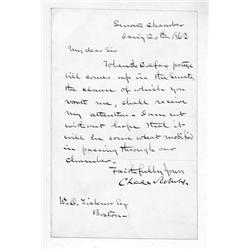 Senate Chamber
20th 1863
My dear Sir
When Colfax postge
bill comes up in the Senate
the clause of which you
wait me, shall receive
my attention - I am not
without hope that it
will be some what modified
in passing through our
chamber -
Faithfully Yours
Chas Sumner
W. D. Ticknor Esq
Boston -